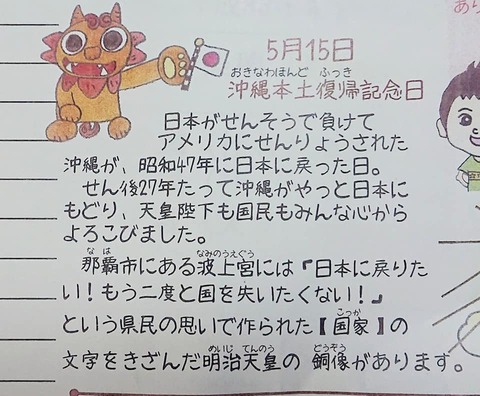 5月15日
おきなわほんど ふっき
沖縄本土復帰記念日
日本がせんそうで負けて
アメリカにせんりょうされた
沖縄が、昭和47年に日本に戻った日。
せん後27年たって沖縄がやっと日本に
もどり、天皇陛下も国民もみんな心から
よろこびました。
なは なみのうえぐう
那覇市にある波上宮には『日本に戻りた
い！もう二度と国を失いたくない！』
こっか
という県民の思いで作られた【国家】の
めいじ てんのう どうぞう
文字をきざんだ明治天皇の 銅像があります。
あり